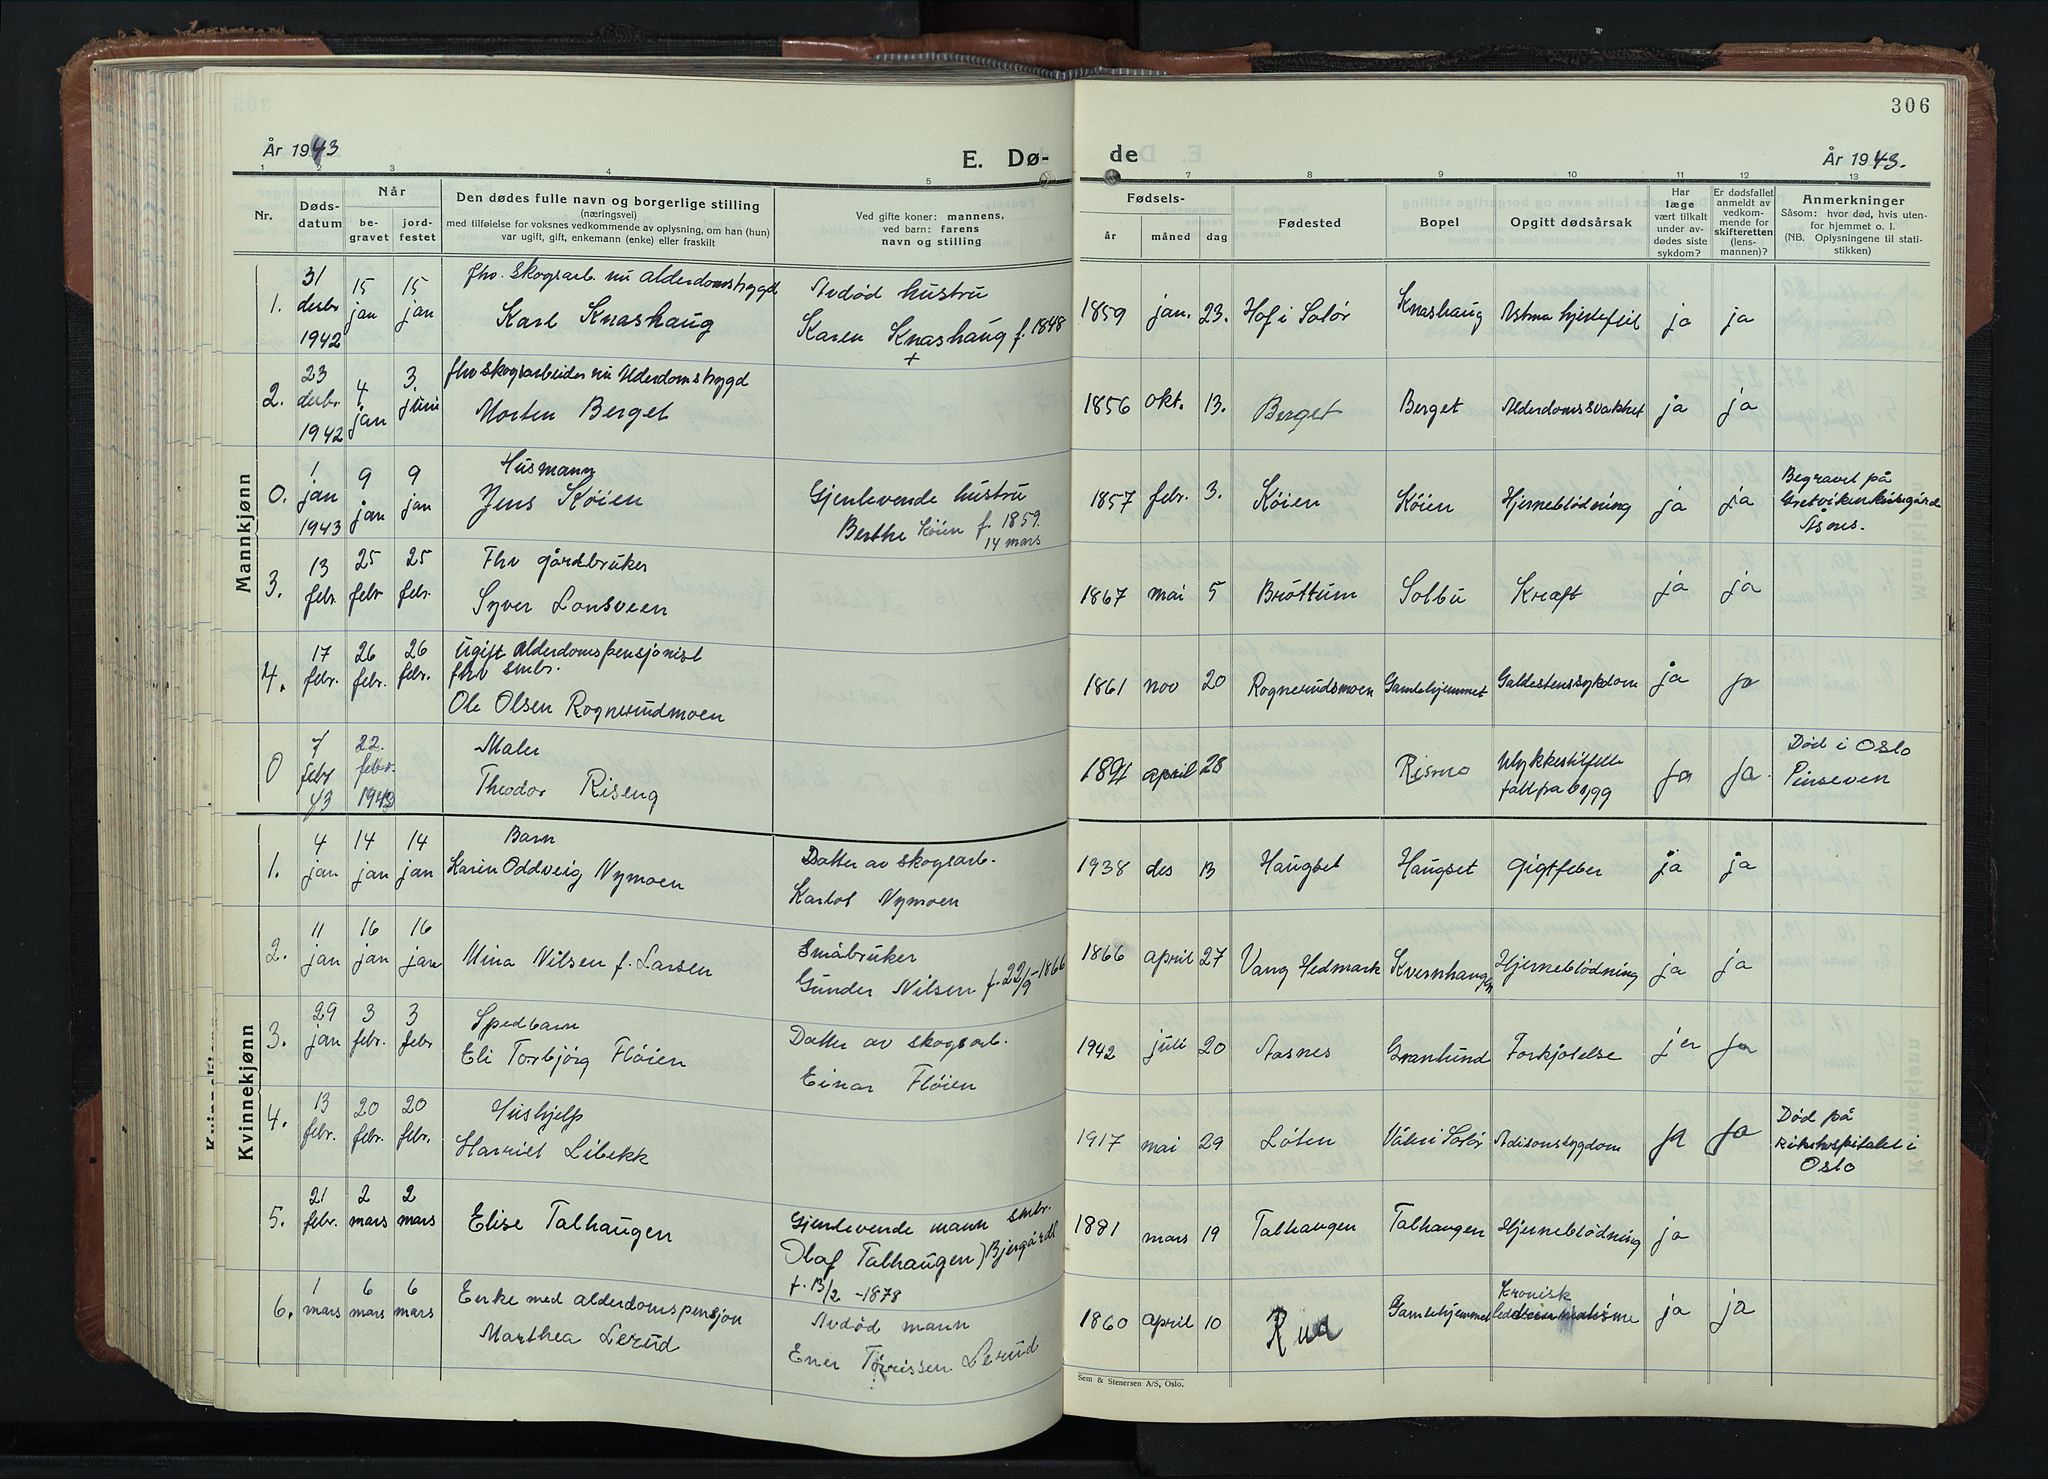 306
År 1943
E. Dø-
de
År 1943.
1 2 3 4 5 7 8 9 10 11 12 13
Nr.
Døds-
datum
Når
be-
gravet
jord-
festet
Den dødes fulle navn og borgerlige stilling
(næringsvei)
med tilføielse for voksnes vedkommende av oplysning, om han (hun)
var ugift, gift, enkemann (enke) eller fraskilt
Ved gifte koner: mannens,
ved barn: farens
navn og stilling
Fødsels-
år
måned
dag
Fødested
Bopel
Opgitt dødsårsak
Har
læge
vært tilkalt
under av-
dødes siste
sykdom?
Er dødsfallet
anmeldt av
vedkom-
mende for
skifteretten
(lens-
mannen)?
Anmerkninger
Såsom: hvor død, hvis uten-
for hjemmet o. l.
(NB. Oplysningene til stati-
stikken)
Mannkjønn
1.
31
desbr
1942
15
jan
15
jan
fhv. skogsarb. nu alderdomstrygd
Karl Knashaug
Avdød hustru
Karen Knashaug f. 1848
+
1859 jan. 23. Hof i Solør Knashaug Astma hjertefeil ja ja
2.
23
desbr
1942
4.
jan
3.
juni
fhv skogsarbeider nu Alderdomstrygd
Morten Berget
1856 okt. 13. Berget Berget Alderdomssvakhet ja ja
0.
1
jan
1943
9
jan
9
jan
Husmann
Jens Køien
Gjenlevende hustru
Berthe Køien f. 1859.
14 mars
1857 febr. 3. Køien Køien Hjerneblødning ja ja
Begravet på
3.
13
febr.
25
febr
25
febr.
Fhv gårdbruker
Syver Lonsveen
1867 mai 5 Brøttum Solbu Kræft ja ja
4.
17
febr.
26
febr.
26
febr.
Ugift Alderdomspensjonist
fhv smbr.
Ole Olsen Rognerudmoen
1861 nov 20 Rognerudsmoen Gamlehjemmet Galdestenssykdom ja ja
0
7
febr
43
22.
febr.
1943
Maler
Theodor Riseng
april 28 Rismo Ulykkestilfelle
fall fra bygg
ja ja.
Død i Oslo
Kvinnekjønn
1.
4
jan
14
jan
14
jan
Barn
Karin Oddveig Nymoen
Datter av skogsarb.
Karlot Nymoen
1938 des 13 Haugset Haugset Gigtfeber ja ja
2.
11
jan
16
jan
16
jan
Mina Nilsen f. Larsen
Småbruker
Gunder Nilsen f. 22/9-1866
1866 april 27 Vang Hedmark Kvernhaugen Hjerneblødning ja ja
3.
29
jan
3
febr.
3
febr
Spedbarn
Eli Torbjörg Fløien
Datter av skogsarb.
Einar Fløien
1942 juli 20 Aasnes Granlund Forkjølelse ja
4.
13
febr.
20
febr.
20
febr.
Hushjelp
Harriet Libekk
1917 mai 29 Løten Våler i Solør Adisonsygdom ja ja
Død på
Rikshospitalet i
Oslo
5.
21
febr.
2
mars
2
mars
Elise Talhaugen
Gjenlevende mann smbr.
Olaf Talhaugen
f. 13/2 -1878
1881 mars 19 Talhaugen Talhaugen Hjerneblødning ja
6.
1
mars
6
mars
6
mars
Enke med alderdomspensjon
Marthea Lerud
Avdød mann
Lerud
1860 april 10 Rua Gamlehjemmet Kronisk
ja ja
Sem & Stenersen A/S, Oslo.